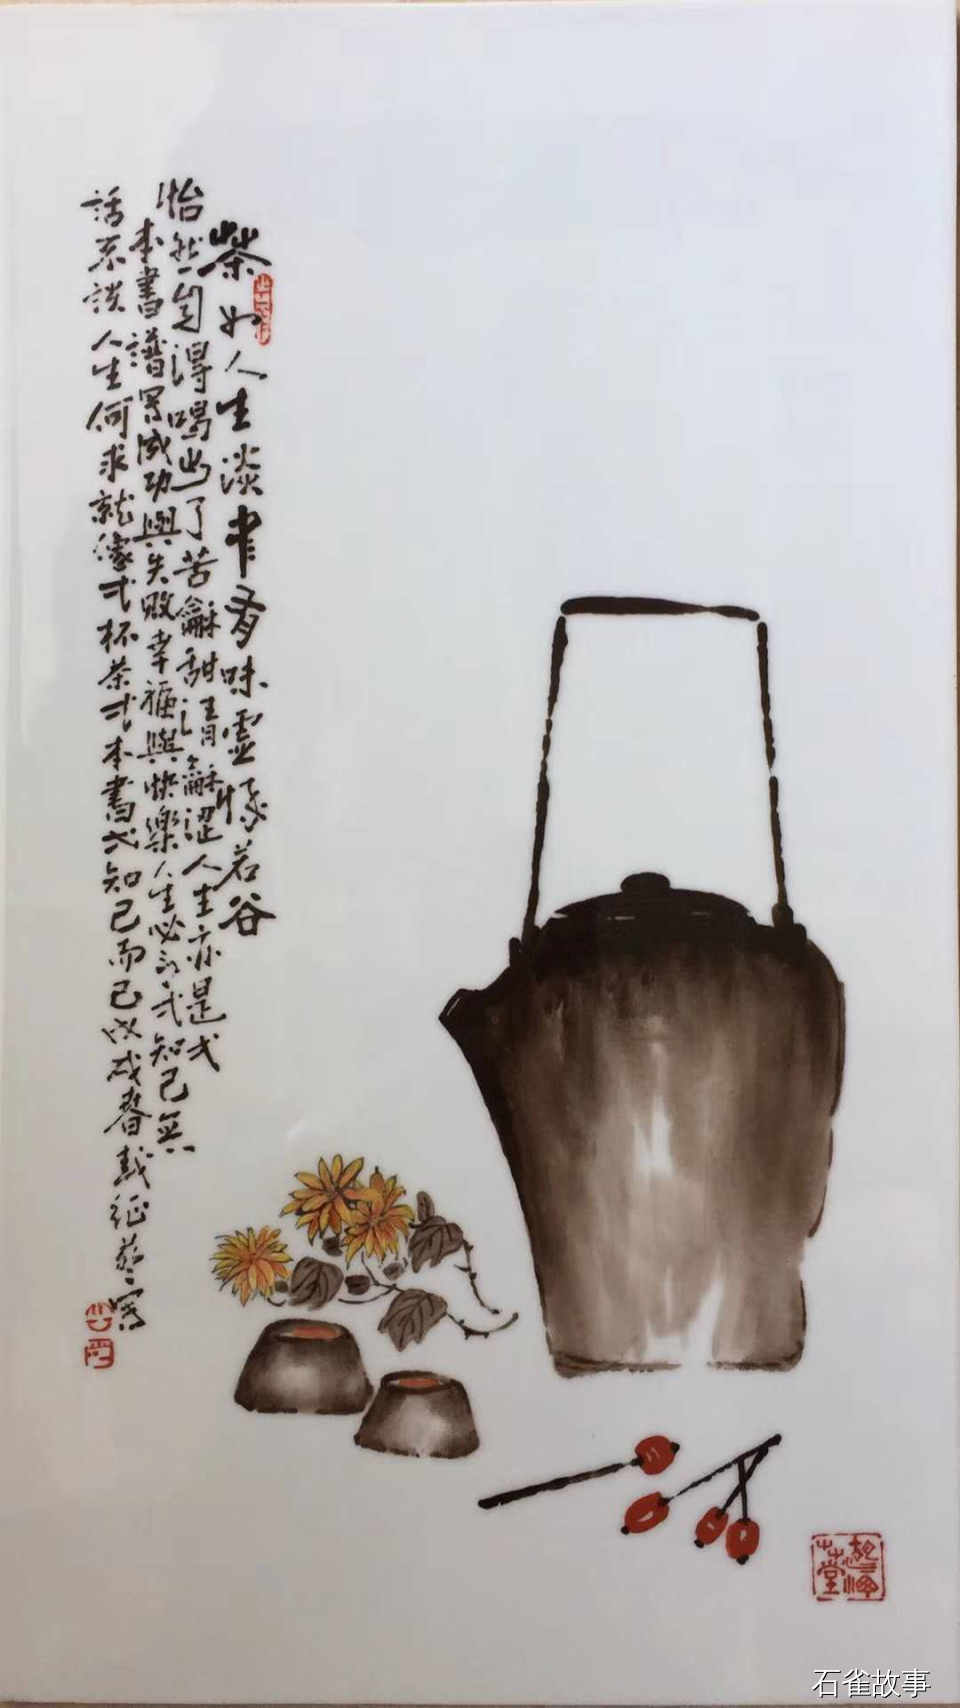 茶如人生淡中有味虛懷若谷
怡然自得喝出了苦龢甜清龢涩人生亦是弌
本書譜写成功與失败幸福與快樂人生必弌知己無
話不談人生何求就像弌杯茶弌本書弌知己而已戊戌春戴征写
石雀故事